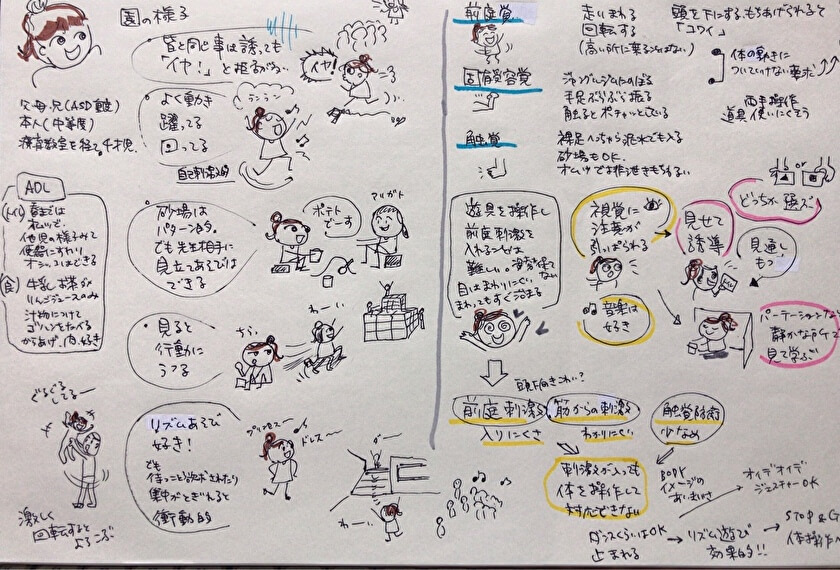 園の様子
皆と同じ事は誘っても
「イヤ!」と拒否が多い
イヤ!
父母、兄(ASD重度)
本人(中等度)
療育教室を経て4才児
よく動き
躍ってる
回ってる
自己刺激的
ランラン
ADL
(トイレ)
他児の様子みて
便器にすわり
オシッコはできる
(食)
牛乳、お茶が
りんごジュースのみ
汁物につけて
ゴハンをたべる
からあげ、肉好き
砂場は
パターン的。
でも先生相手に
見立てあそびは
できる
ポテト
でーす
アリガト
見ると
行動に
うつる
わーい
リズムあそび
好き!
でも
待つこと
集中がとぎれると
衝動的
プリンセス〜
ドレス〜
わーい
ぐるぐる
してるー
激しく
回転すると
よろこぶ
前庭覚
走りまわる
回転する
(高い所に乗るは少ない)
頭を下にする、もちあげられると
「コワイ」
体の動きに
ついていけない
固有受容覚
ジャングルジムにのぼる
手足ぶらぶら振る
触るとポチャッとしている
両手操作
道具使いにくそう
触覚
裸足へっちゃら泥水でも入る
砂場もOK.
オムツで
遊具を操作し
前庭刺激を
入れるのは
難しい。
目はまわりにくい
まわってもすぐ治まる
視覚に
注意が
引っぱられる
音楽は
好き
見せて
誘導
or
どっちか選ぶ
見通し
もつ
パーテーション
静かな所で
見て学ぶ
頭下向きこわい?
前庭刺激
入りにくさ
筋からの刺激
わかりにくい
触覚防衛
少なめ
刺激が入っても
体を操作して
対応できない
BODY
イメージの
あいまいさ
オイデオイデ
ジェスチャーOK
ダンスくらいはOK
止まれる
リズム遊び
効果的!!
STOP&G
体操作